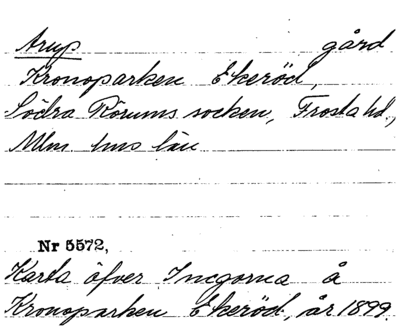 Arup gård
Kronoparken Ekeröd,
Södra Rörums socken, Frosta hd.,
Mlm. hus län
Nr 5572,
Karta öfver Inegorna å
Kronoparken Ekeröd, år 1899.